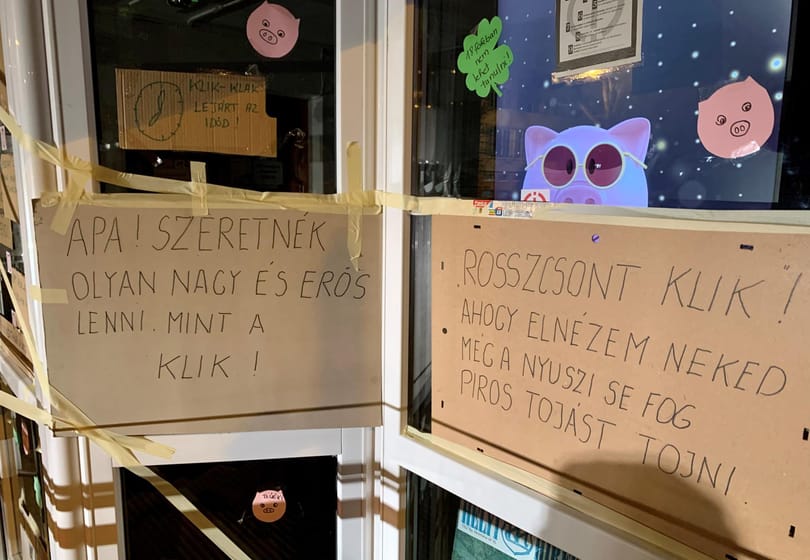 KLIK-KLAK
LEJÁRT AZ
IDŐD!
18 fokban
nem
lehet
tanulni!
APA! SZERETNÉK
OLYAN NAGY ÉS ERŐS
LENNI. MINT A
KLIK!
"ROSSZCSONT KLIK"!
AHOGY ELNÉZEM NEKED
MÉG A NYUSZI SE FOG
PIROS TOJÁST TOJNI